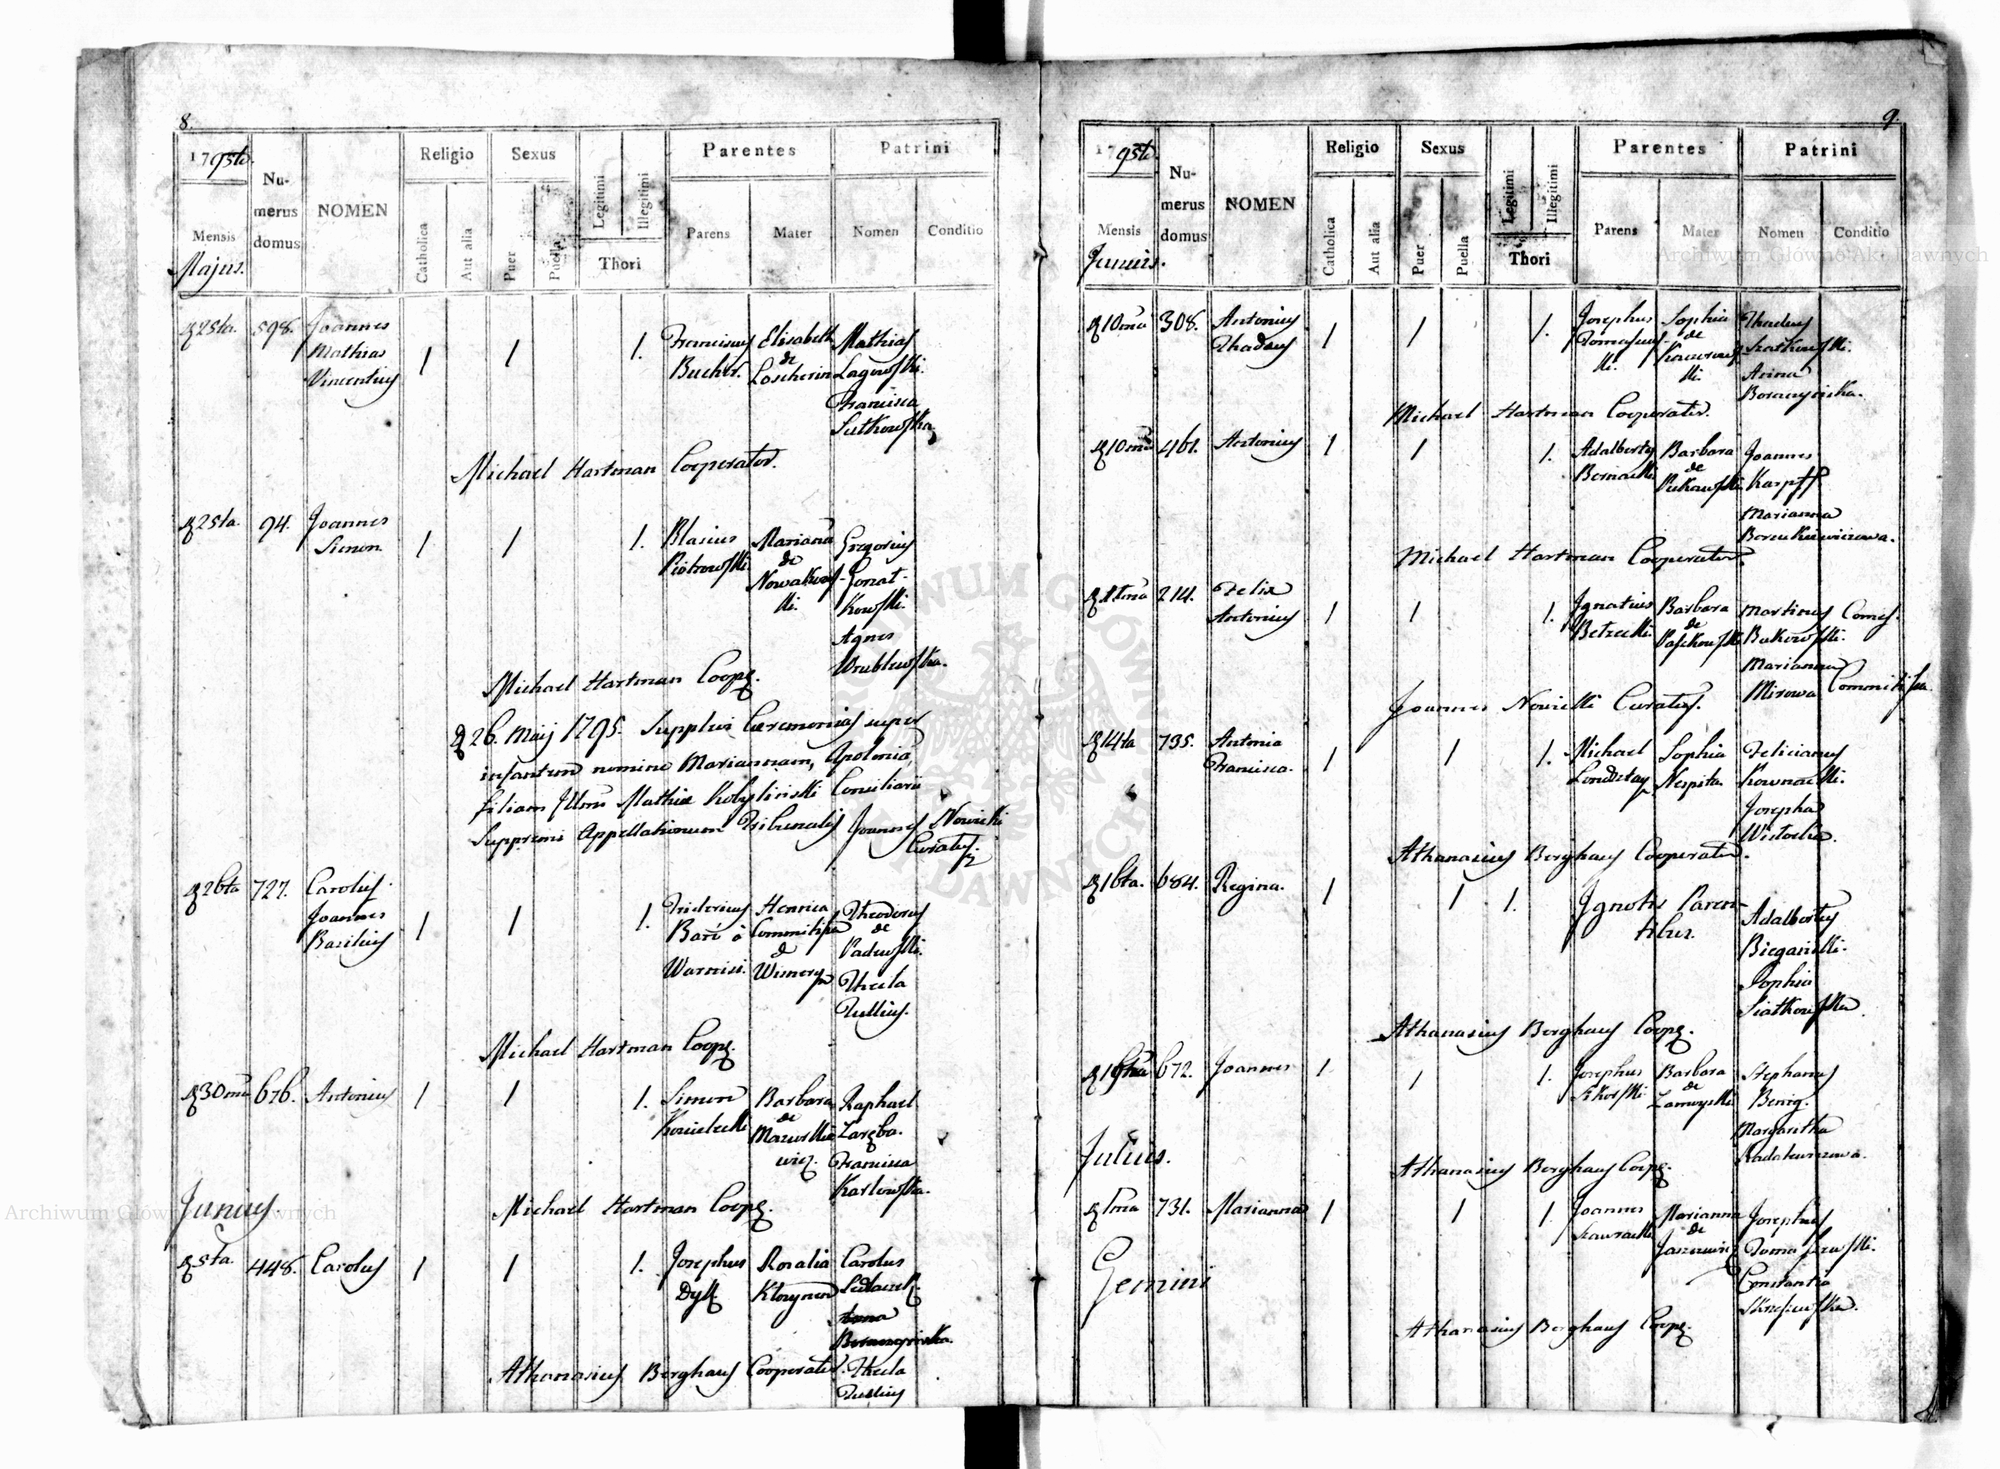 8.
1795to.
Nu-
merus
domus
NOMEN
Religio
Sexus
Legitimi
Illegitimi
Parentes
Patrini
Mensis
Catholica
Aut alia
Puer
Puella
Thori
Parens
Mater
Nomen
Conditio
Majus.
25ta. 598. Joannes
Mathias
Vincentius
1 1 1.
Franciscus
Bucher.
Elisabeth
de
Loscherin
Mathias
Lagowski.
Francisca
Sutkowska
Michael Hartman Cooperator.
25ta. 94. Joannes
Simon.
1 1 1.
Blasius
Piotrowski.
Marianna
de
Nowakows-
ki.
Gregorius
Gonat-
kowski.
Agnes
Wrublewska.
Michael Hartman Coop.
26. Maij 1795. Supplevi Caeremonias super
infantem nomine Mariannam, Apolonia,
filiam Illmi Mathiae Kobylinski Consiliarii
Supremi Appellationum Tribunalis Joannes Nowicki
Curatus.
26ta 727. Carolus.
Joannes
Basilius
1 1 1.
Fridericus
Bar. à
Warnisi.
Henrica
Commitissa
de
Wismery
Theodorus
de
Padewski.
Thecla
Tullius.
Michael Hartman Coop.
30ma 676. Antonius
1 1 1.
Simon
Konielecki
Barbara
de
Mazurkie-
wicz.
Raphael
Zaręba.
Francisca
Karlowska.
Michael Hartman Coop.
Junius.
5ta. 448. Carolus
1 1 1.
Josephus
Dyll
Rosalia
Carolus
Sedlaczek.
Anna
Boraczynska.
Athanasius Berghaus Cooperator. Thecla
Tullius
9.
1795to.
Nu-
merus
domus
NOMEN
Religio
Sexus
Legitimi
Illegitimi
Parentes
Patrini
Mensis
Catholica
Aut alia
Puer
Puella
Thori
Parens
Mater
Nomen
Conditio
Junius.
10ma 308. Antonius
Thadeus
1 1 1.
Josephus
Tomaszews-
ki.
Sophia
de
Kaczorows-
ki.
Thadeus
Szatkowski.
Anna
Boraczynska.
Michael Hartman Cooperator.
10ma 461. Antonius
1 1 1.
Adalbertus
Bernacki.
Barbara
de
Piekarski.
Joannes
Karpff
Marianna
Boreukiewiczowa.
Michael Hartman Cooperator.
11ma 214. Felix
Antonius
1 1 1.
Ignatius
Betzecki.
Barbara
de
Paszkowski
Martinus Comes.
Bukowski.
Marianna
Mirowa Commitissa.
Joannes Nowicki Curatus.
14ta 735. Antonia
Francisca.
1 1 1.
Michael
Sophia
Nespita.
Felicianus
Kownacki.
Josepha
Wistocka.
Athanasius Berghaus Cooperator.
16ta. 684. Regina.
1 1 1.
Ignotis Paren-
tibus.
Adalbertus
Bieganski.
Sophia
Siatkowska
Athanasius Berghaus Coop.
19na 672. Joannes
1 1 1.
Josephus
Sikorski
Barbara
de
Zamoyski
Stephanus
Benig.
Margaritha
Radakiewiczowa.
Athanasius Berghaus Coop.
Julius.
1ma 731. Marianna
1 1 1.
Joannes
Szawracki
Marianna
de
Jaszewicz
Josephus
Tomaszewski.
Constantia
Skrzeszewska.
Gemini
Athanasius Berghaus Coop.
Archiwum Główne Akt Dawnych
Archiwum Główne Akt Dawnych
ARCHIWUM GŁÓWNE AKT DAWNYCH